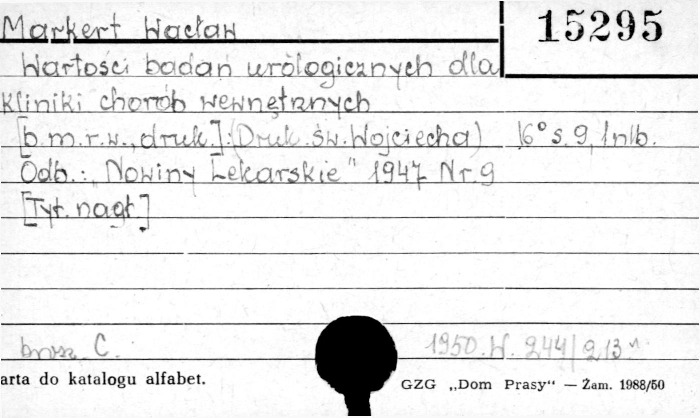 Markert Wacław
15295
Wartości badań urologicznych dla
kliniki chorób wewnętrznych
[b.m.r.w., druk.]: (Druk. św. Wojciecha) 16° s. 9, 1 nlb.
Odb.: „Nowiny Lekarskie" 1947 Nr. 9
[Tyt. nagł.]
brosz. C. 1950. W. 244/213
arta do katalogu alfabet.
GZG „Dom Prasy“ — Żam. 1988/50